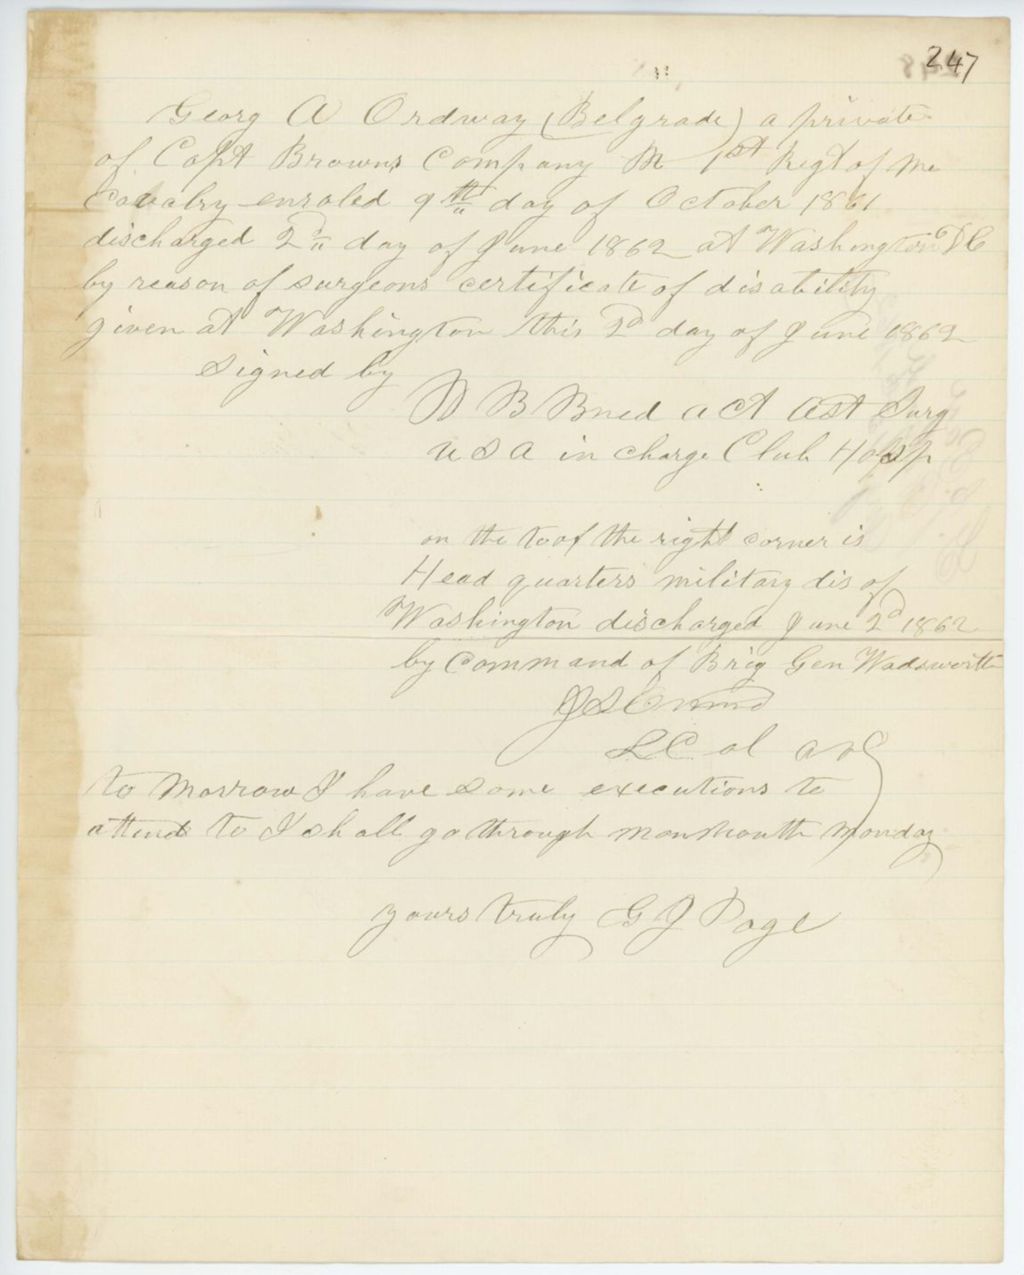 247
Georg A Ordway (Belgrade) a private
of Capt Browns Company M 1st Regt of Me
Cavalry enroled 9th day of October 1861
discharged 2d day of June 1862 at Washington DC
by reason of surgeons certificate of disability
given at Washington this 2d day of June 1862
Signed by
B act Ast Surg
U S A in charge Club Hosp
on the to of the right corner is
Head quarters military dis of
Washington discharged June 2d 1862
by Command of Brig Gen Wadsworth
J S
L Col
to morrow I have some executions to
attend to I shall go through monmouth monday
yours truly G J Page